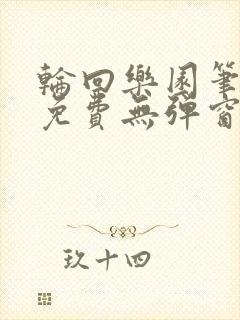 輪回樂園筆
免費無彈窗
玖十四